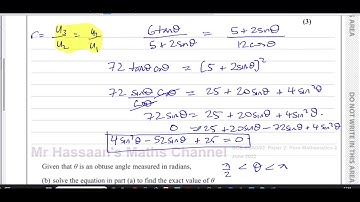 (3)
r = u₃/u₂ = u₂/u₁ 6tanθ/(5+2sinθ) = (5+2sinθ)/(12cosθ)
72tanθcosθ = (5+2sinθ)²
72 sinθ/cosθ cosθ = 25+20sinθ+4sin²θ
72sinθ = 25+20sinθ+4sin²θ.
0 = 25+20sinθ-72sinθ+4sin²θ
4sin²θ-52sinθ+25=0
Mr Hassaan's Maths Channel
π/2 < θ < π
Given that θ is an obtuse angle measured in radians,
(b) solve the equation in part (a) to find the exact value of θ
DO NOT WRITE IN THIS AREA